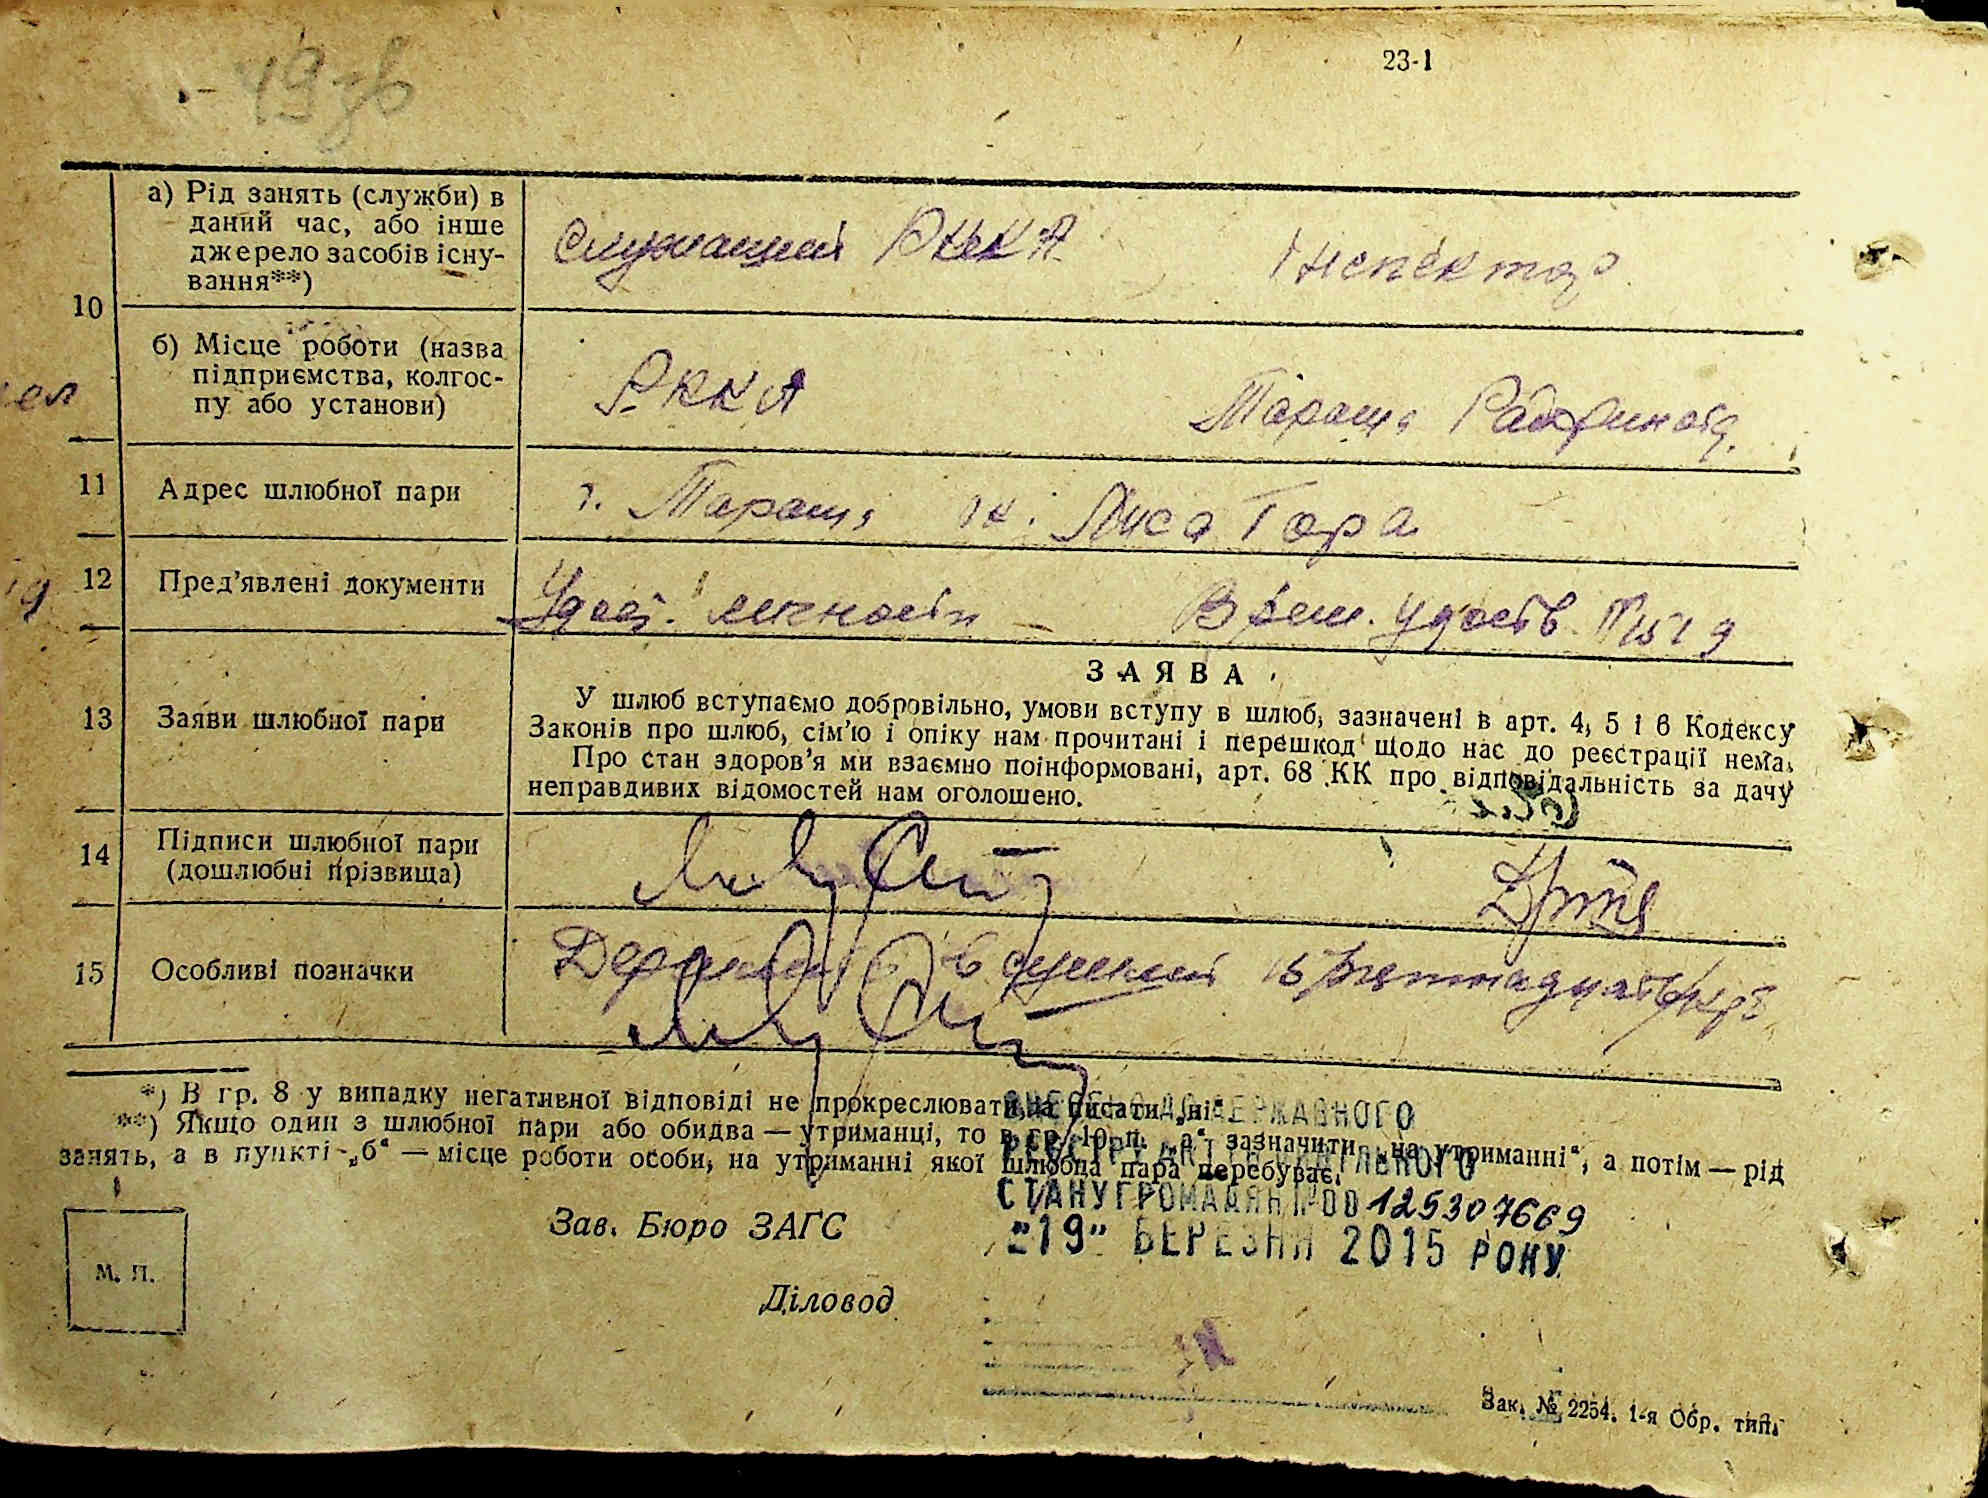 49 зв
23-1
10
а) Рід занять (служби) в
даний час, або інше
джерело засобів існу-
вання**)
Служащий РККА
Інспектор
б) Місце роботи (назва
підприємства, колгос-
пу або установи)
РККА
Тараща
11
Адрес шлюбної пари
г. Тараща Лиса Гора
12
Пред'явлені документи
Удост. личности
Врем. удостов.
13
Заяви шлюбної пари
ЗАЯВА
У шлюб вступаємо добровільно, умови вступу в шлюб, зазначені в арт. 4, 5 і 6 Кодексу
Законів про шлюб, сім'ю і опіку нам прочитані і перешкод щодо нас до реєстрації нема.
Про стан здоров'я ми взаємно поінформовані, арт. 68 КК про відповідальність за дачу
неправдивих відомостей нам оголошено.
14
Підписи шлюбної пари
(дошлюбні прізвища)
15
Особливі позначки
*) В гр. 8 у випадку негативної відповіді не прокреслювати, а писати „ні“
**) Якщо один з шлюбної пари або обидва — утриманці, то в гр. 10 п. „а“ зазначити „на утриманні“, а потім — рід
занять, а в пункті „б“ — місце роботи особи, на утриманні якої шлюбна пара перебуває.
ВНЕСЕНО ДО ДЕРЖАВНОГО
РЕЄСТРУ АКТІВ ЦИВІЛЬНОГО
СТАНУ ГРОМАДЯН № 00125307669
"19" БЕРЕЗНЯ 2015 РОКУ
Зав. Бюро ЗАГС
М. П.
Діловод
Зак. № 2254. 1-я Обр. тип.